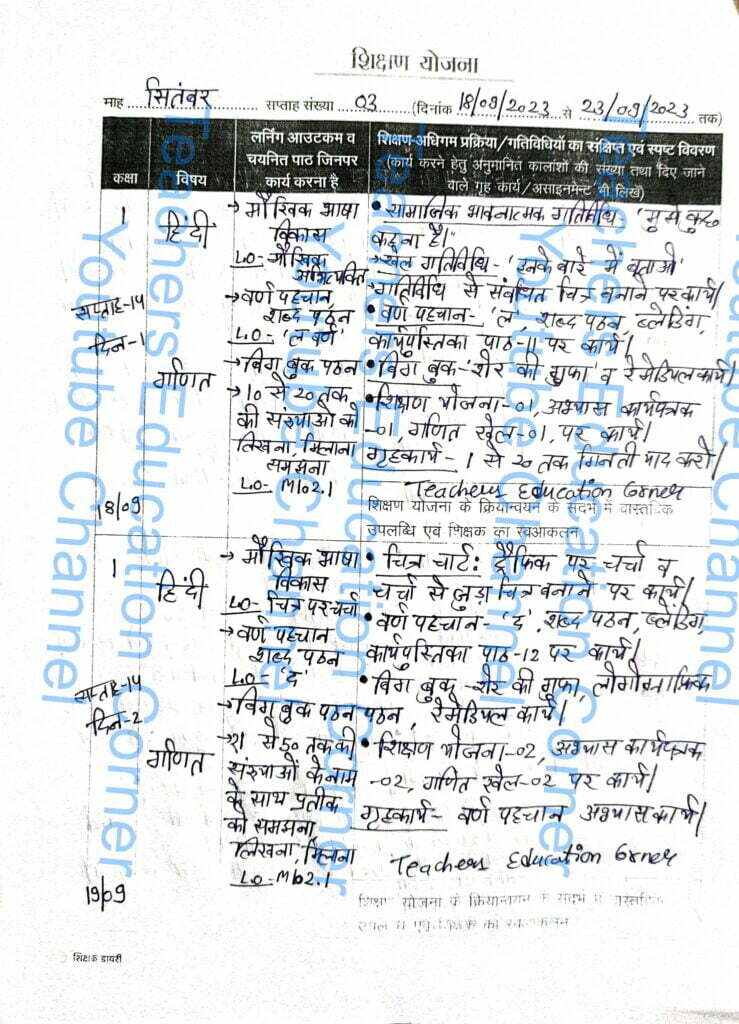 शिक्षण योजना
माह सितंबर सप्ताह संख्या 03 (दिनांक 18/09/2023 से 23/09/2023 तक)
कक्षा
विषय
लर्निंग आउटकम व
चयनित पाठ जिनपर
कार्य करना है
शिक्षण-अधिगम प्रक्रिया/गतिविधियों का संक्षिप्त एवं स्पष्ट विवरण
(कार्य करने हेतु अनुमानित कालांशों की संख्या तथा दिए जाने
वाले गृह कार्य/असाइनमेंट भी लिखें)
1
सप्ताह-14
दिन-1
18/09
हिंदी
गणित
→ मौखिक भाषा
विकास
L.O- मौखिक
अभिव्यक्ति
→ वर्ण पहचान
शब्द पठन
L.O- 'ल वर्ण'
→ बिग बुक पठन
→ 10 से 20 तक
की संख्याओं को
लिखना, मिलाना
समझना
L.O- M102.1
• सामाजिक भावनात्मक गतिविधि- 'मुझे कुछ
कहना है।"
→ खेल गतिविधि- 'इनके बारे में बताओ'
गतिविधि से संबंधित चित्र बनाने पर कार्य।
• वर्ण पहचान- 'ल', शब्द पठन, ब्लेंडिंग,
कार्यपुस्तिका पाठ-11 पर कार्य।
• बिग बुक-'शेर की गुफा' व रेमेडियल कार्य।
• शिक्षण योजना-01, अभ्यास कार्यपत्रक
-01, गणित खेल-01, पर कार्य।
गृहकार्य- 1 से 20 तक गिनती याद करो।
Teachers Education Corner
शिक्षण योजना के क्रियान्वयन के संदर्भ में वास्तविक
उपलब्धि एवं शिक्षक का स्वआकलन
1
सप्ताह-14
दिन-2
19/09
हिंदी
गणित
→ मौखिक भाषा
विकास
L.O- चित्र पर चर्चा
→ वर्ण पहचान
शब्द पठन
L.O- 'द'
→ बिग बुक पठन
→ 21 से 50 तक की
संख्याओं के नाम
के साथ प्रतीक
को समझना,
लिखना, मिलना
L.O- M102.1
• चित्र चार्ट: ट्रैफिक पर चर्चा व
चर्चा से जुड़ा चित्र बनाने पर कार्य।
• वर्ण पहचान- 'द', शब्द पठन, ब्लेंडिंग,
कार्यपुस्तिका पाठ-12 पर कार्य।
• बिग बुक-शेर की गुफा, लोगोग्राफिक
पठन, रेमेडियल कार्य।
• शिक्षण योजना-02, अभ्यास कार्यपत्रक
-02, गणित खेल-02 पर कार्य।
गृहकार्य- वर्ण पहचान अभ्यास कार्य।
Teachers Education Corner
शिक्षण योजना के क्रियान्वयन के संदर्भ में वास्तविक
उपलब्धि एवं शिक्षक का स्वआकलन
शिक्षक डायरी
Teachers Education Corner
Youtube Channel
Teachers Education Corner
Youtube Channel
Teachers Education Corner
Youtube Channel